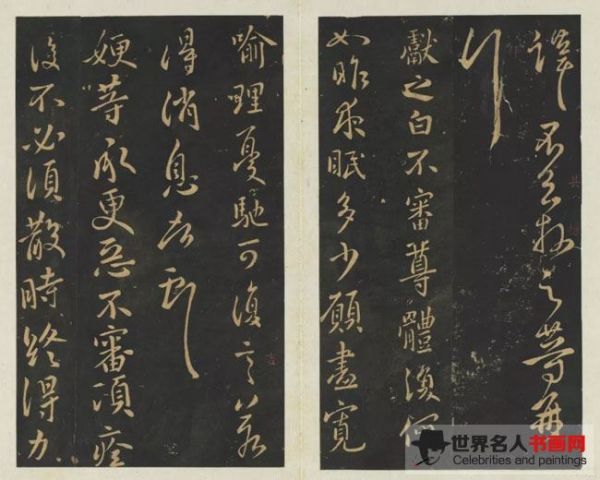 等再
拜
獻之白不審尊體復何
如昨來眠多少願盡寬
喻理憂馳可復言
得消息
等承更惡不審
後不必須散時終得力
世界名人书画网
Celebrities and paintings